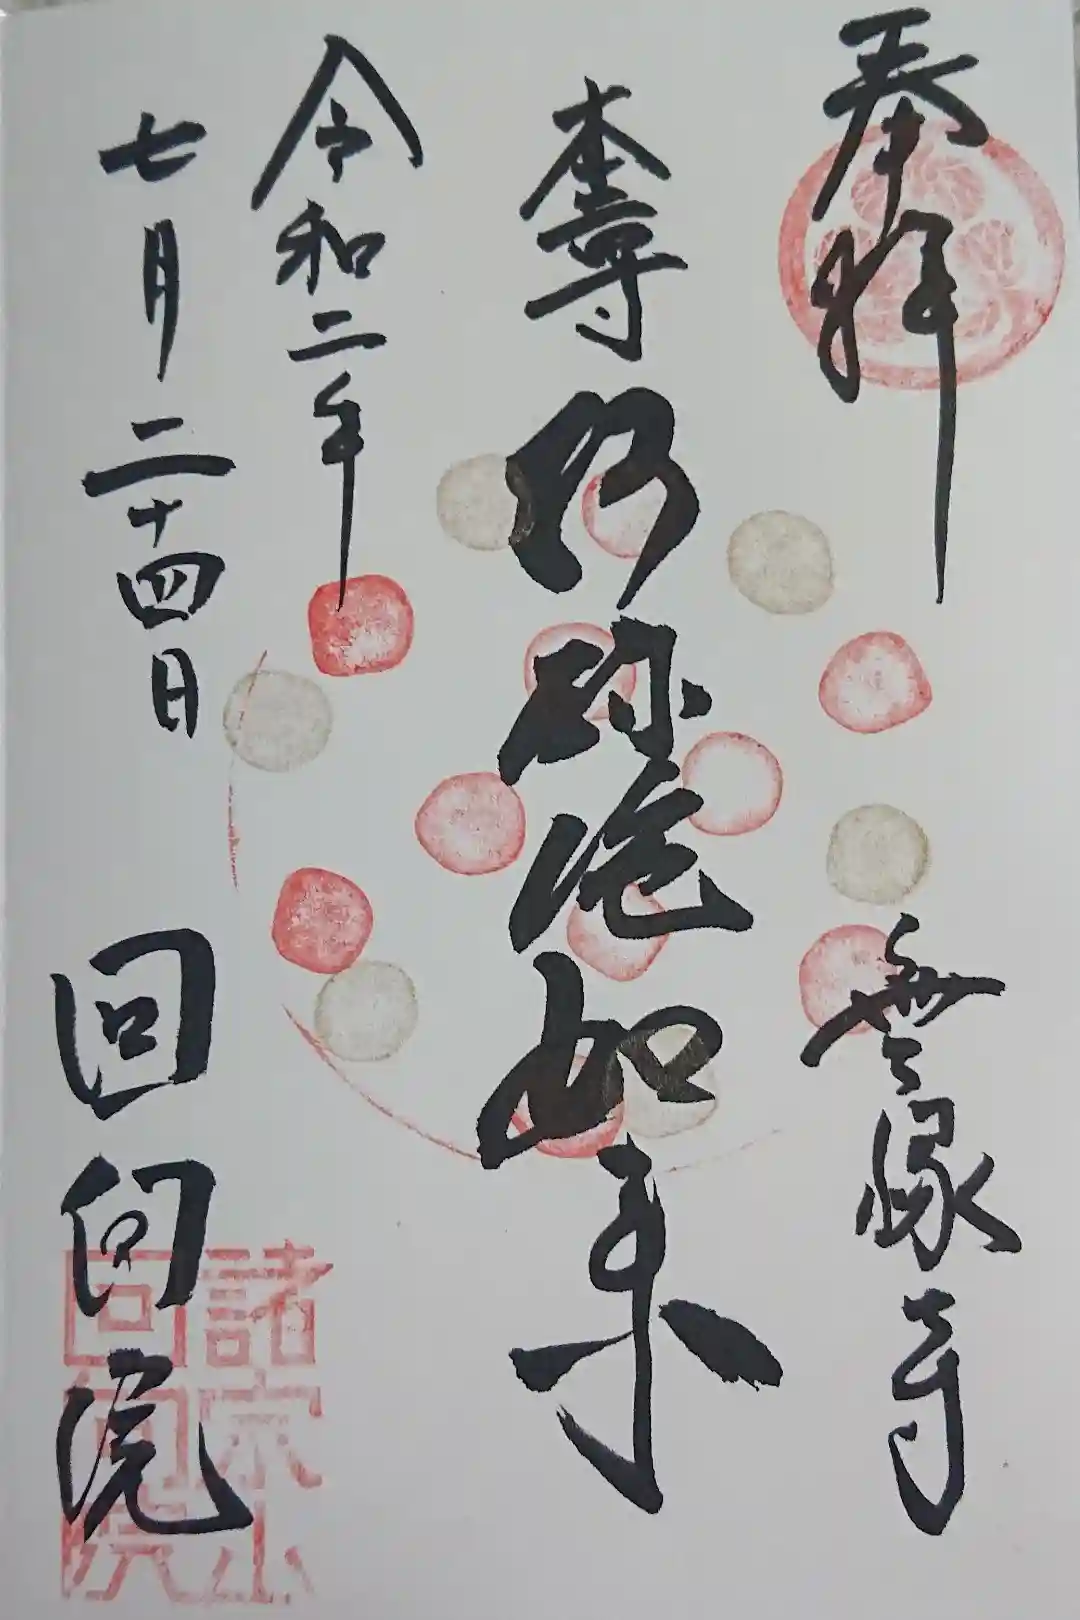 奉拝
無縁寺
本尊 阿弥陀如来
令和二年
七月二十四日
回向院
諸宗山
回向院